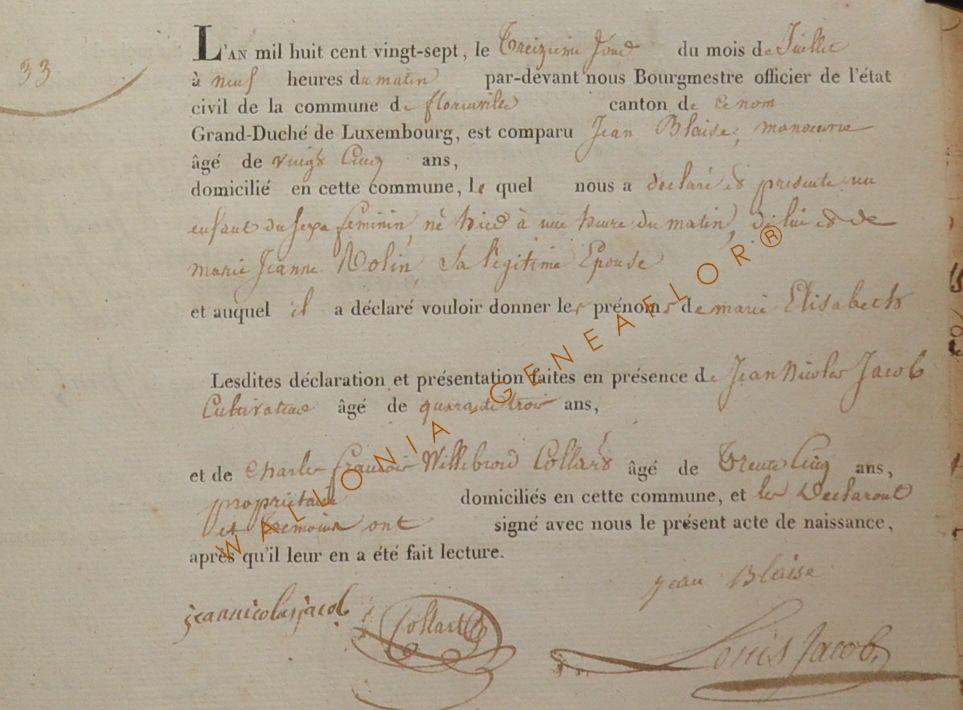 33
L'AN mil huit cent vingt-sept, le Treizieme Jour du mois de Juillet
à neuf heures du matin par-devant nous Bourgmestre officier de l'état
civil de la commune de florenville canton de ce nom
Grand-Duché de Luxembourg, est comparu Jean Blaise, manoeuvre
âgé de vingt Cinq ans,
domicilié en cette commune, le quel nous a declaré et presenté un
enfant du sexe feminin, né hier à une heure du matin, de lui et de
marie Jeanne Rolin, Sa légitime Epouse
et auquel il a déclaré vouloir donner les prénoms de marie Elisabeth
Lesdites déclaration et présentation faites en présence de Jean Nicolas Jacob
Cultivateur âgé de quarante trois ans,
et de Charles françois Willibrord Collard âgé de Trente Cinq ans,
propriétaire domiciliés en cette commune, et les Declarant
et temoins ont signé avec nous le présent acte de naissance,
après qu'il leur en a été fait lecture.
jean Blaise
jeannicolasjacob Collard
Louis Jacob
WALLONIA GENEAFLOR ®